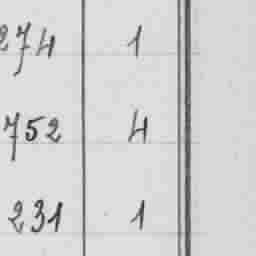 274 1
752 4
231 1